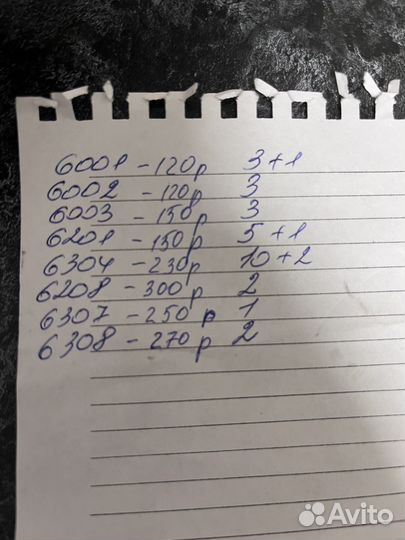 6001 - 120р 3+1
6002 - 120р 3
6003 - 150р 3
6201 - 150р 5+1
6304 - 230р 10+2
6208 - 300р 2
6307 - 250р 1
6308 - 270р 2
Avito